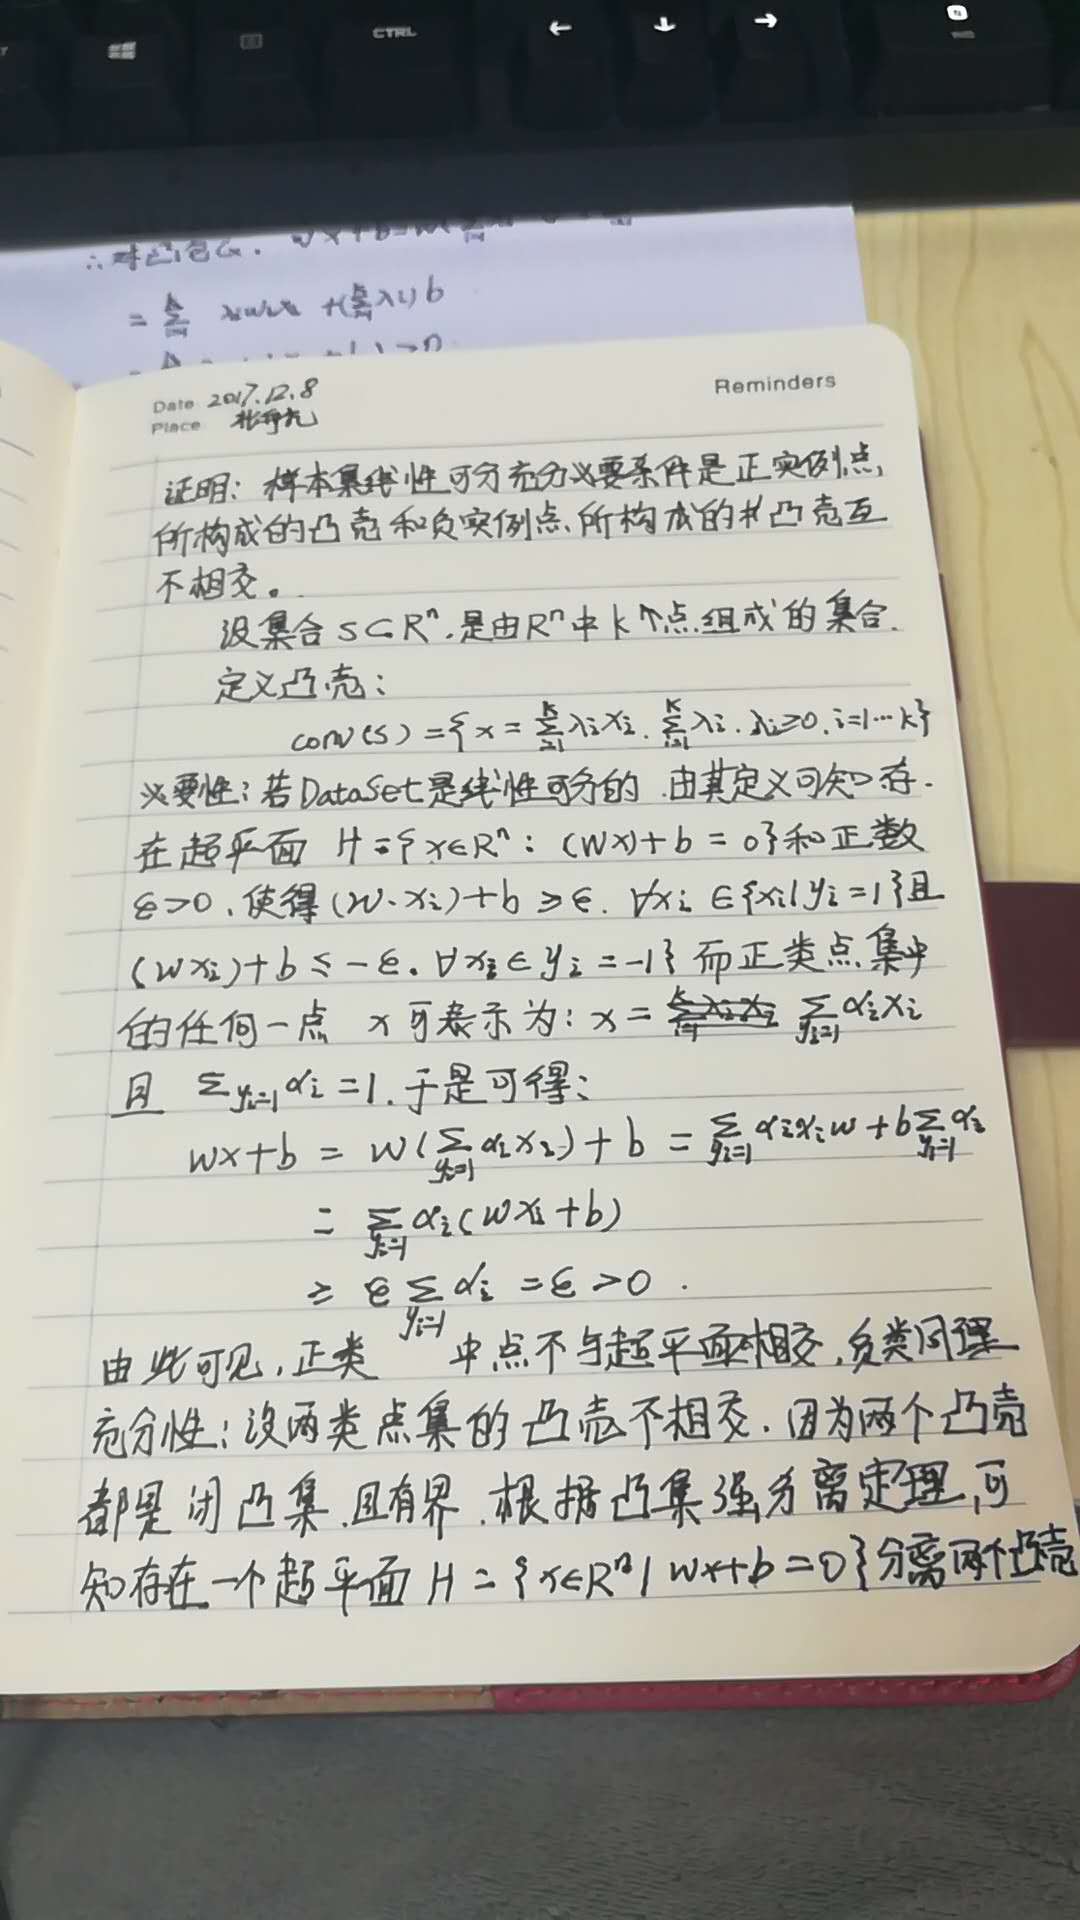 CTRL
← ↓ →
∴对凸包
= Σ +(Σλi)b
Date 2017.12.8
Reminders
Place
证明: 样本集线性可分充分必要条件是正实例点
所构成的凸壳和负实例点所构成的凸壳互
不相交。
设集合 S⊂Rⁿ.是由Rⁿ中k个点组成的集合.
定义凸壳:
conv(S)={x=\sum_{i=1}^{k}λixi.\sum_{i=1}^{k}λi.λi≥0.i=1…k}
必要性:若DataSet是线性可分的.由其定义可知存
在超平面 H={x∈Rⁿ: (wx)+b=0}和正数
ε>0.使得(w·xi)+b≥ε.∀xi∈{xi|yi=1}且
(wxi)+b≤-ε.∀xi∈yi=-1}而正类点集中
的任何一点 x可表示为:x=\sum_{yi=1}αixi
且 Σ_{yi=1}αi=1.于是可得:
wx+b = w(\sum_{yi=1}αixi)+b = \sum_{yi=1}αixiw+b\sum_{yi=1}αi
= \sum_{yi=1}αi(wxi+b)
≥ ε\sum_{yi=1}αi=ε>0.
由此可见,正类 中点不与超平面相交,负类同理
充分性:设两类点集的凸壳不相交.因为两个凸壳
都是闭凸集.且有界.根据凸集强分离定理,可
知存在一个超平面H={x∈Rⁿ|wx+b=0}分离两个凸壳